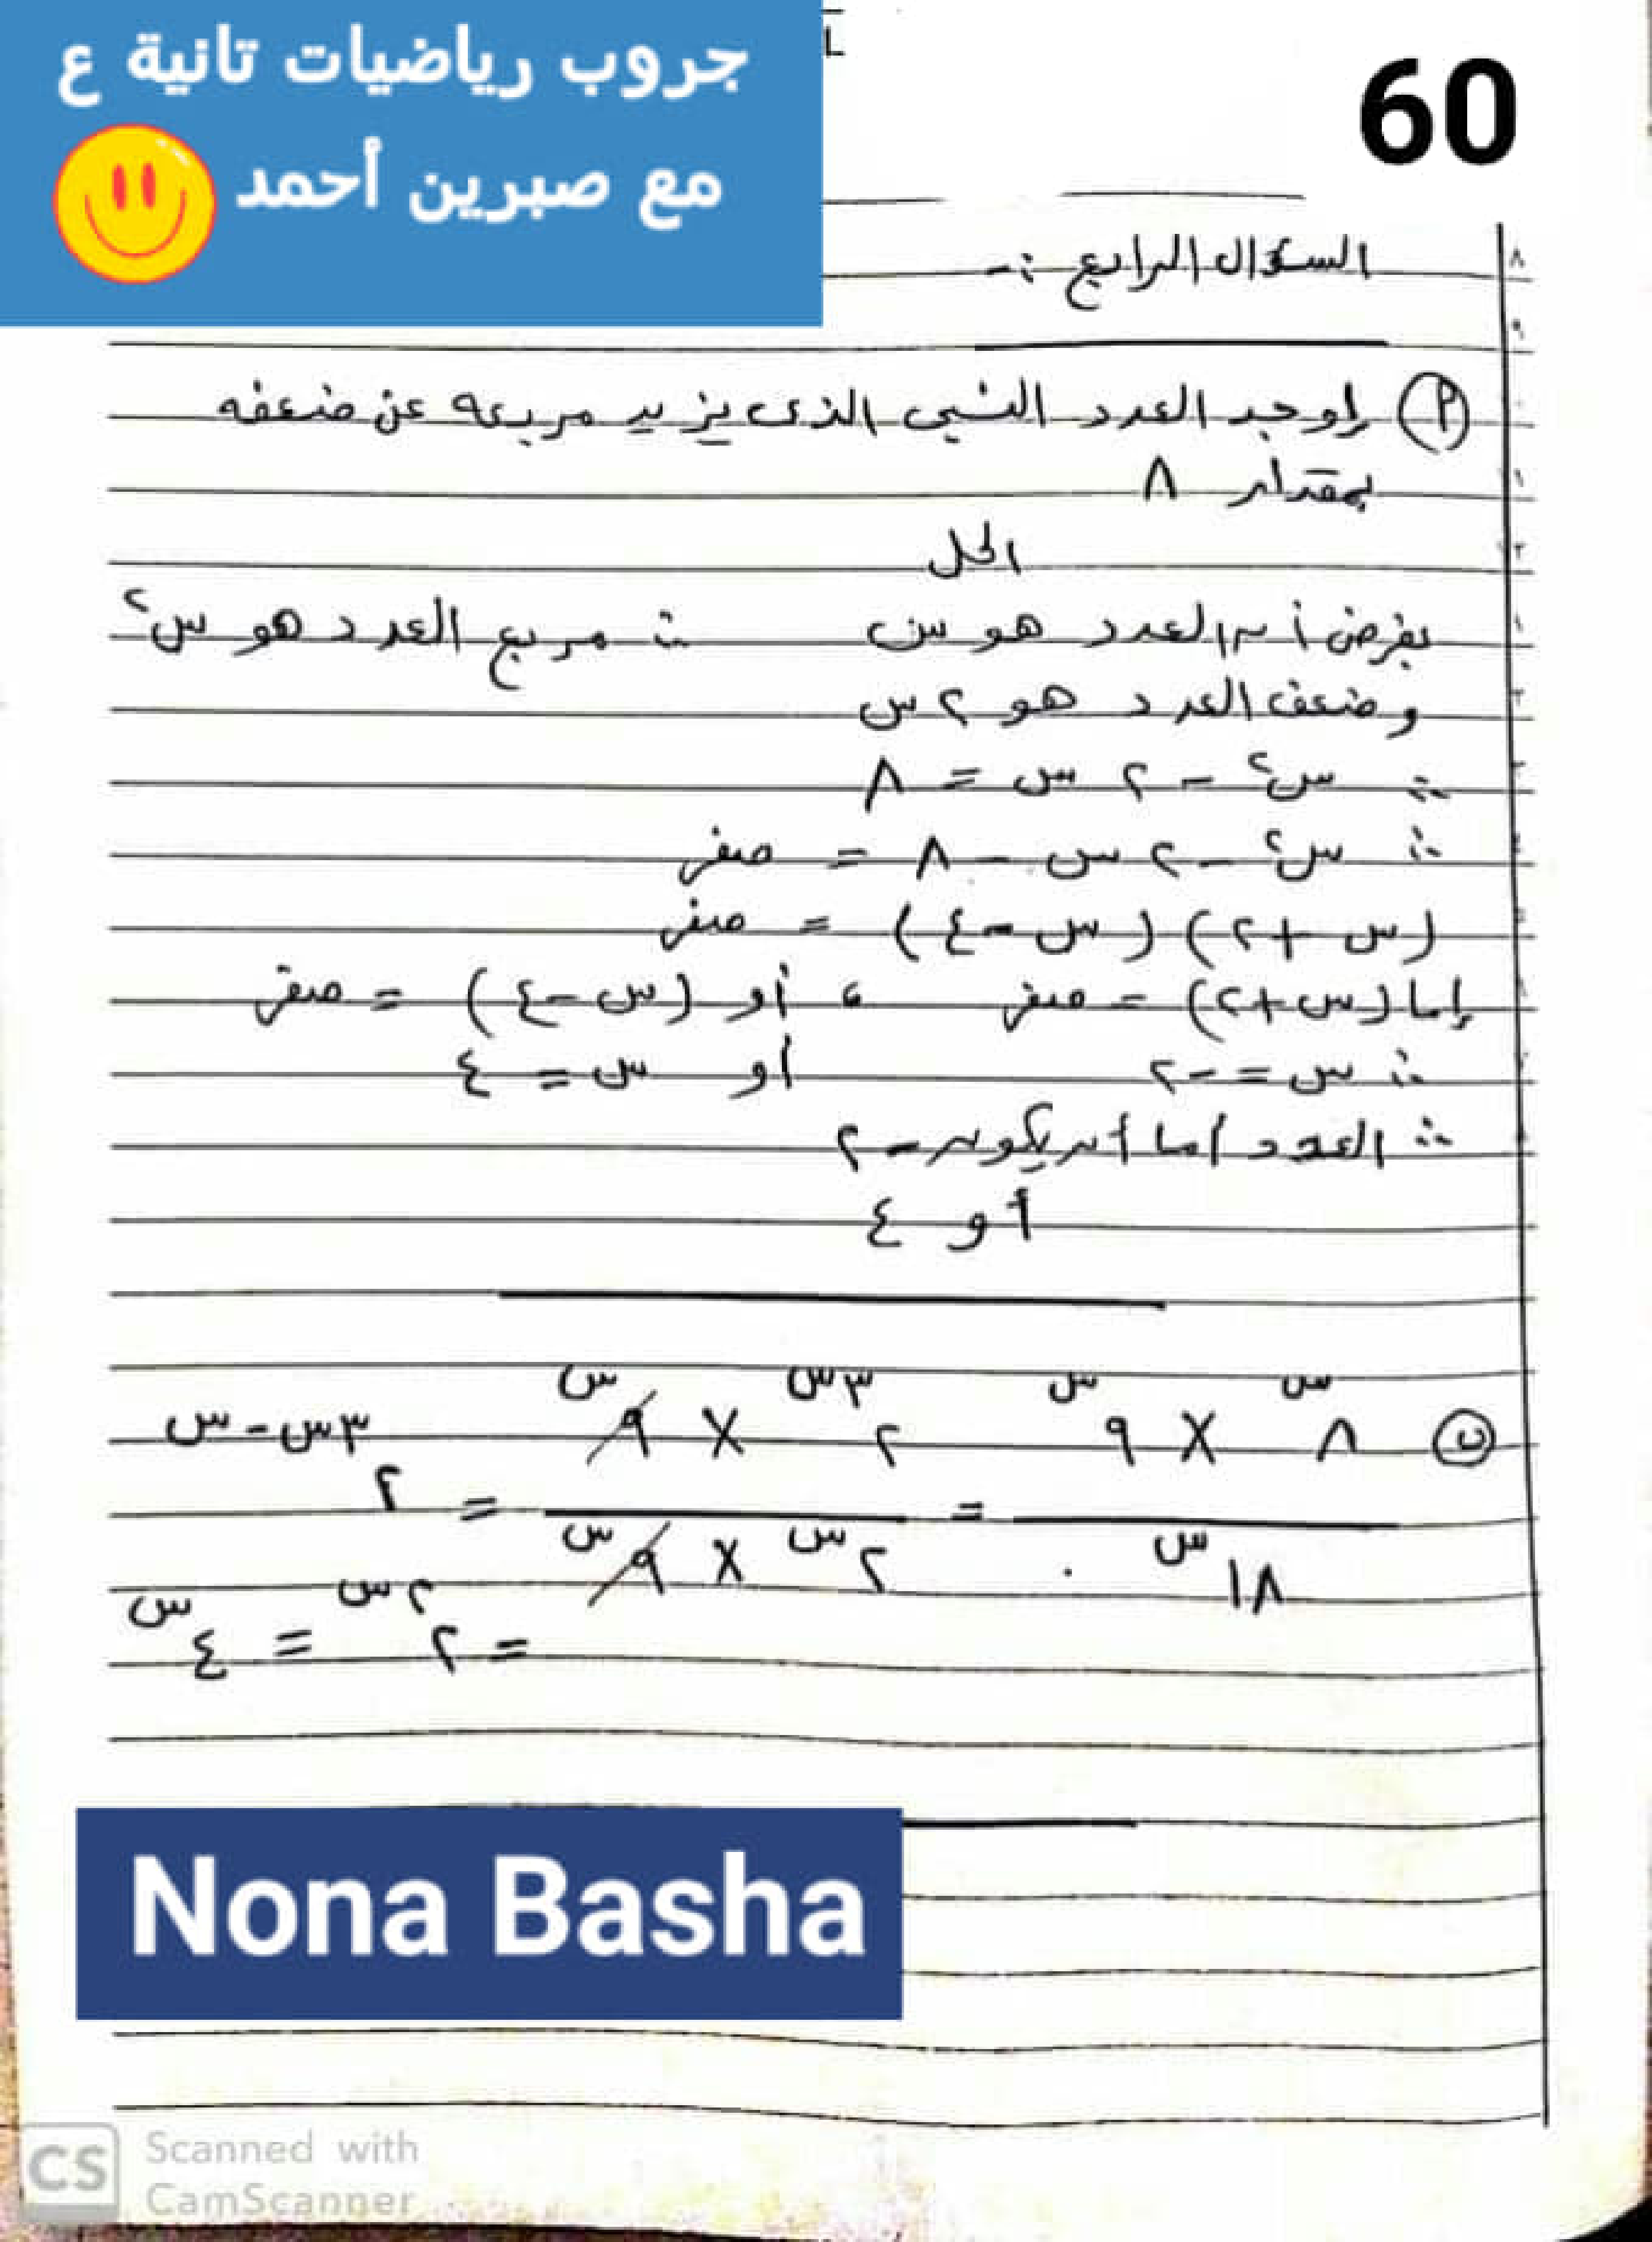 جروب رياضيات تانية ع
مع صبرين أحمد
60
السؤال الرابع :-
(P) اوجد العدد النسبى الذى يزيد مربعه عن ضعفه
بمقدار ٨
الحل
بفرض أن العدد هو س ∴ مربع العدد هو س٢
وضعف العدد هو ٢ س
∴ س٢ - ٢ س = ٨
∴ س٢ - ٢ س - ٨ = صفر
(س + ٢) (س - ٤) = صفر
إما (س + ٢) = صفر ، أو (س - ٤) = صفر
∴ س = -٢ أو س = ٤
∴ العدد اما أن يكون -٢
أو ٤
(ب) ٨^س × ٩^س / ١٨^س = ٢^٣س × ٩^س / ٢^س × ٩^س = ٢^٣س - س
= ٢^٢س = ٤^س
Nona Basha
CS
Scanned with
CamScanner